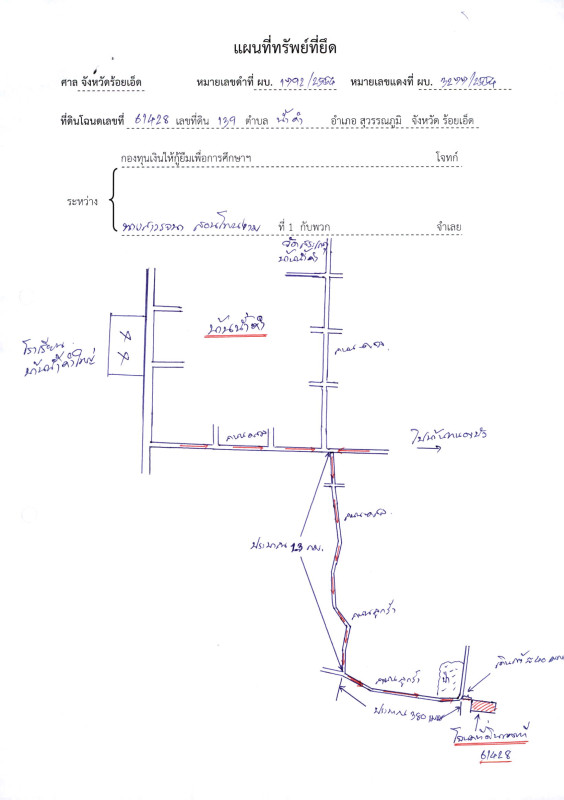 แผนที่ทรัพย์ที่ยึด
ศาล จังหวัดร้อยเอ็ด หมายเลขคดีดำที่ ผบ. 1792/2554 หมายเลขแดงที่ ผบ. 3277/2554
ที่ดินโฉนดเลขที่ 61428 เลขที่ดิน 139 ตำบล น้ำคำ อำเภอ สุวรรณภูมิ จังหวัด ร้อยเอ็ด
กองทุนเงินให้กู้ยืมเพื่อการศึกษาฯ โจทก์
ระหว่าง
ที่ 1 กับพวก จำเลย
บ้านน้ำคำ
บ้านน้ำคำ
โรงเรียน
บ้านน้ำคำใหญ่
ถนนคสล.
ถนนคสล.
ไปบ้านหนองบัว
ถนนคสล.
ประมาณ 1.3 กม.
ถนนลูกรัง
ถนนลูกรัง
ประมาณ 380 เมตร
61428